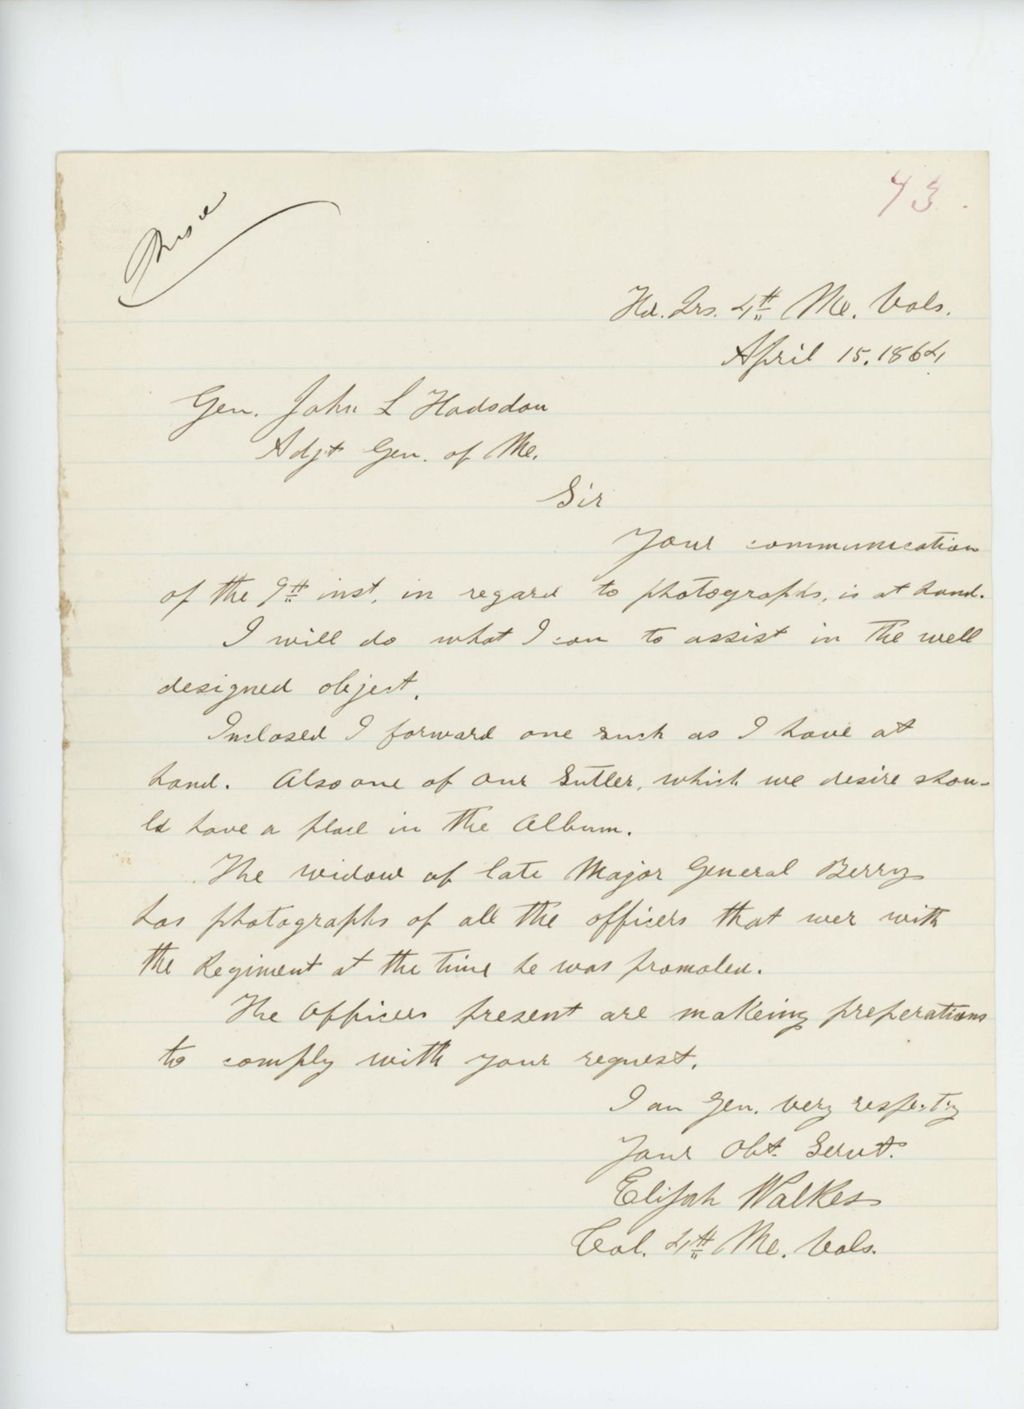 43.
Hd. Qrs. 4th Me. Vols.
April 15, 1864
Gen. John L Hodsdon
Adjt Gen. of Me.
Sir
Your communication
of the 9th inst. in regard to photographs, is at hand.
I will do what I can to assist in the well
designed object.
Inclosed I forward one such as I have at
hand. Also one of our Sutler, which we desire shou-
ld have a place in the Album.
The widow of late Major General Berry
has photographs of all the officers that wer with
the Regiment at the time he was promoted.
The Officers present are makeing preperations
to comply with your request.
I am Gen. very respectly
Your Obt. Servt.
Elijah Walker
Col. 4th Me. Vols.